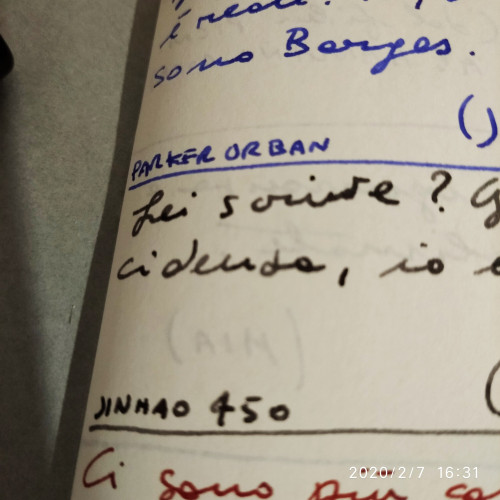 è reale.
sono Borges.
()
PARKER URBAN
Lei scrive? G
cidenza, io
(AIM)
JINHAO 450
Ci sono più co
2020/2/7 16:31